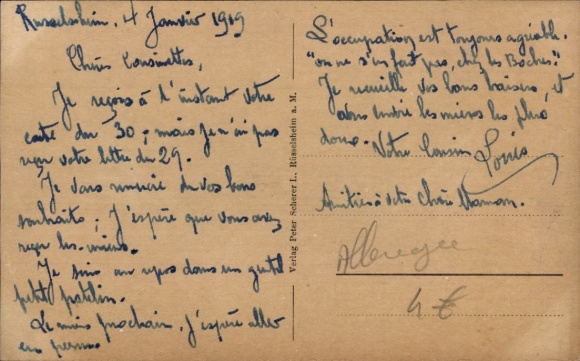 Russelsheim, 4 Janvier 1919
Chères Cousinettes,
Je reçois à l'instant votre
carte du 30; mais je n'ai pas
reçu votre lettre du 29.
Je vous remercie de vos bons
souhaits; J'espère que vous avez
reçu les miens.
Je suis au repos dans un gentil
petit patelin.
Le mois prochain, j'espère aller
en perme
Verlag Peter Scherer I., Rüsselsheim a. M.
L'occupation est toujours agréable.
"on ne s'en fait pas, chez les Boches."
Je recueille vos bons baisers, et
vous envoie les miens les plus
doux.
Votre Cousin Louis
Amitiés à votre Chère Maman.
Allemagne
4 €